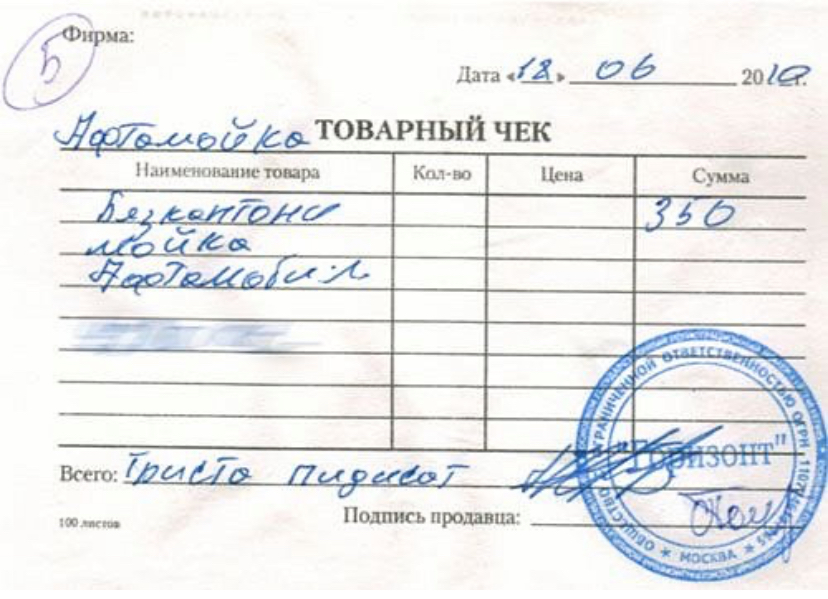 5
Фирма:
Дата «18» 06 2010г.
Афтамойка ТОВАРНЫЙ ЧЕК
Наименование товара Кол-во Цена Сумма
Бязкантони 350
мойка
Афтамобиль
Всего: Триста пидисят
100 листов Подпись продавца:
ОБЩЕСТВО ОГРАНИЧЕННОЙ ОТВЕТСТВЕННОСТЬЮ ОГРН
"ГОРИЗОНТ"
* МОСКВА *